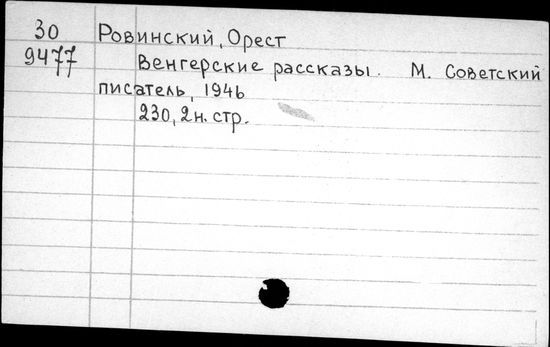 30 Ровинский, Орест
9477 Венгерские рассказы. М. Советский
писатель, 1946
230, 2 н. стр.